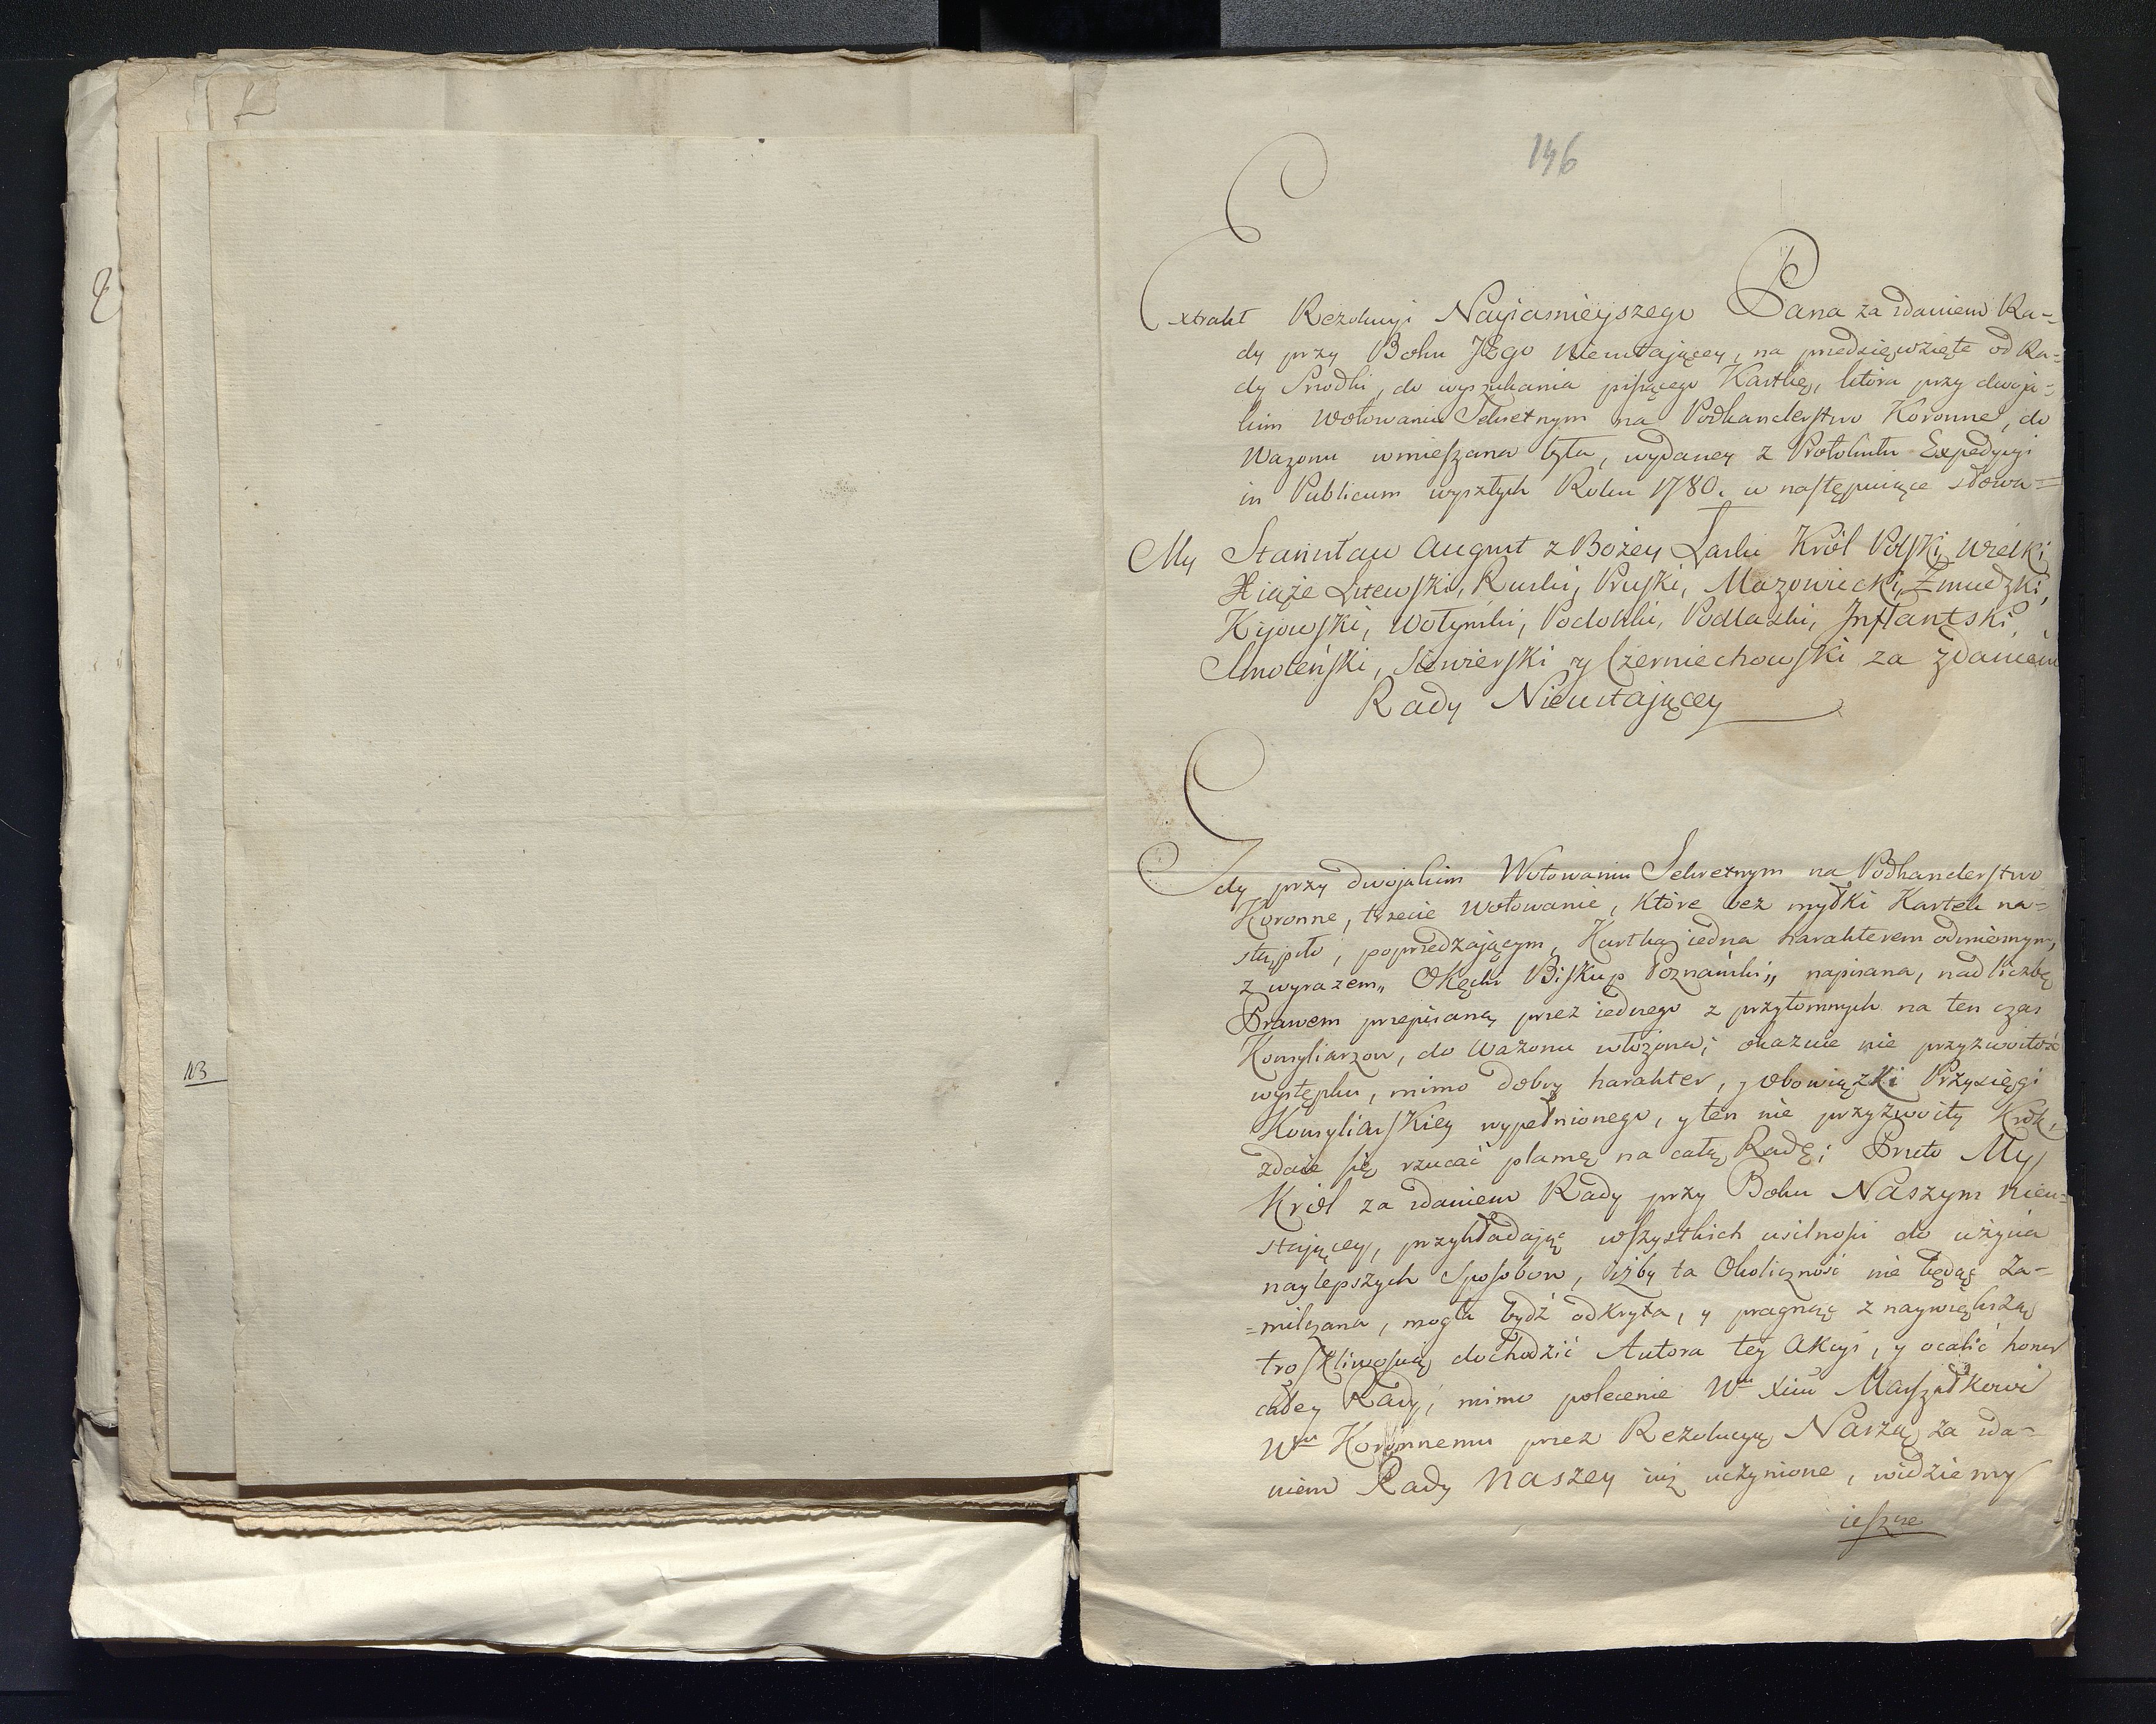 146
Extrakt Rezolucyi Nayiasnieyszego Pana za zdaniem Ra-
dy przy Boku JEgo Nieustaiącey, na przedsięwzięte od Ra-
dy Srodki, do wyszukania piszącego Kartkę, która przy dwoja-
kim Wotowaniu Sekretnym na Podkanclerstwo Koronne, do
Wazonu wmieszana była, wydaney z Protokułu Expedycyi
in Publicum wyszłych Roku 1780. w następuiące słowa=
My Stanisław August z Bożey Łaski Król Polski, Wielki
Xiąże Litewski, Ruski, Pruski, Mazowiecki, Żmudzki,
Kijowski, Wołyński, Podolski, Podlaski, Inflantski,
Smoleński, Siewierski y Czerniechowski za zdaniem
Rady Nieustaiącey
Gdy przy dwojakim Wotowaniu Sekretnym na Podkanclerstwo
Koronne, trzecie Wotowanie, które bez myłki Kartek na-
stąpiło, poprzedzającym, Kartka iedna harakterem odmiennym,
z wyrazem „ Okęcki Biskup Poznański „ napisana, nad liczbę
Prawem przepisaną przez iednego z przytomnych na ten czas
Konsyliarzow, do Wazonu włożona; okazuie nie przyzwoitość
występku, mimo dobry harakter, y obowiązki Przysięgi
Konsyliarskiey wypełnionego, y ten nie przyzwoity Krok,
zdaie się rzucać plamę na całą Radę; Przeto My
Król za zdaniem Rady przy Boku Naszym nieu-
staiącey, przykładaiąc wszystkich usilności do użycia
naylepszych Sposobow, iżby ta Okoliczność nie będąc za-
=milczana, mogła bydź odkryta, y pragnąc z naywiększą
troskliwością dochodzić Autora tey Akcyi, y ocalić honor
całey Rady, mimo polecenie Wu Xciu Marszałkowi
Wu Koronnemu przez Rezolucyą Naszą za zda-
niem Rady Naszey iuż uczynione, widziemy
ieszcze
113